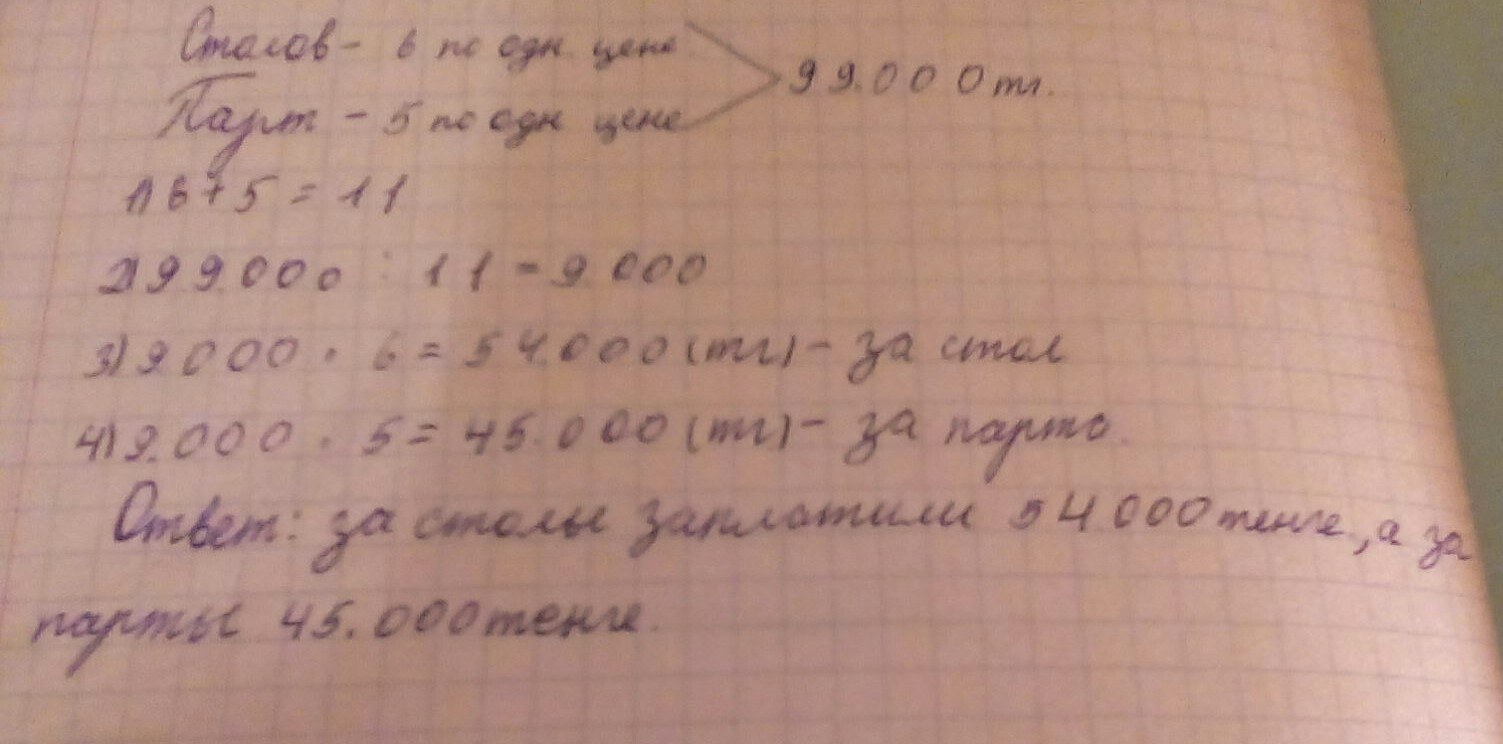 Столов - 6 по одн. цене
99.000 тг.
Парт - 5 по одн цене
1) 6 + 5 = 11
2) 99.000 : 11 = 9 000
3) 9 000 · 6 = 54.000 (тг) - за стол
4) 9.000 · 5 = 45.000 (тг) - за парто.
Ответ: за столы заплатили 54 000 тенге, а за
парты 45.000 тенге.